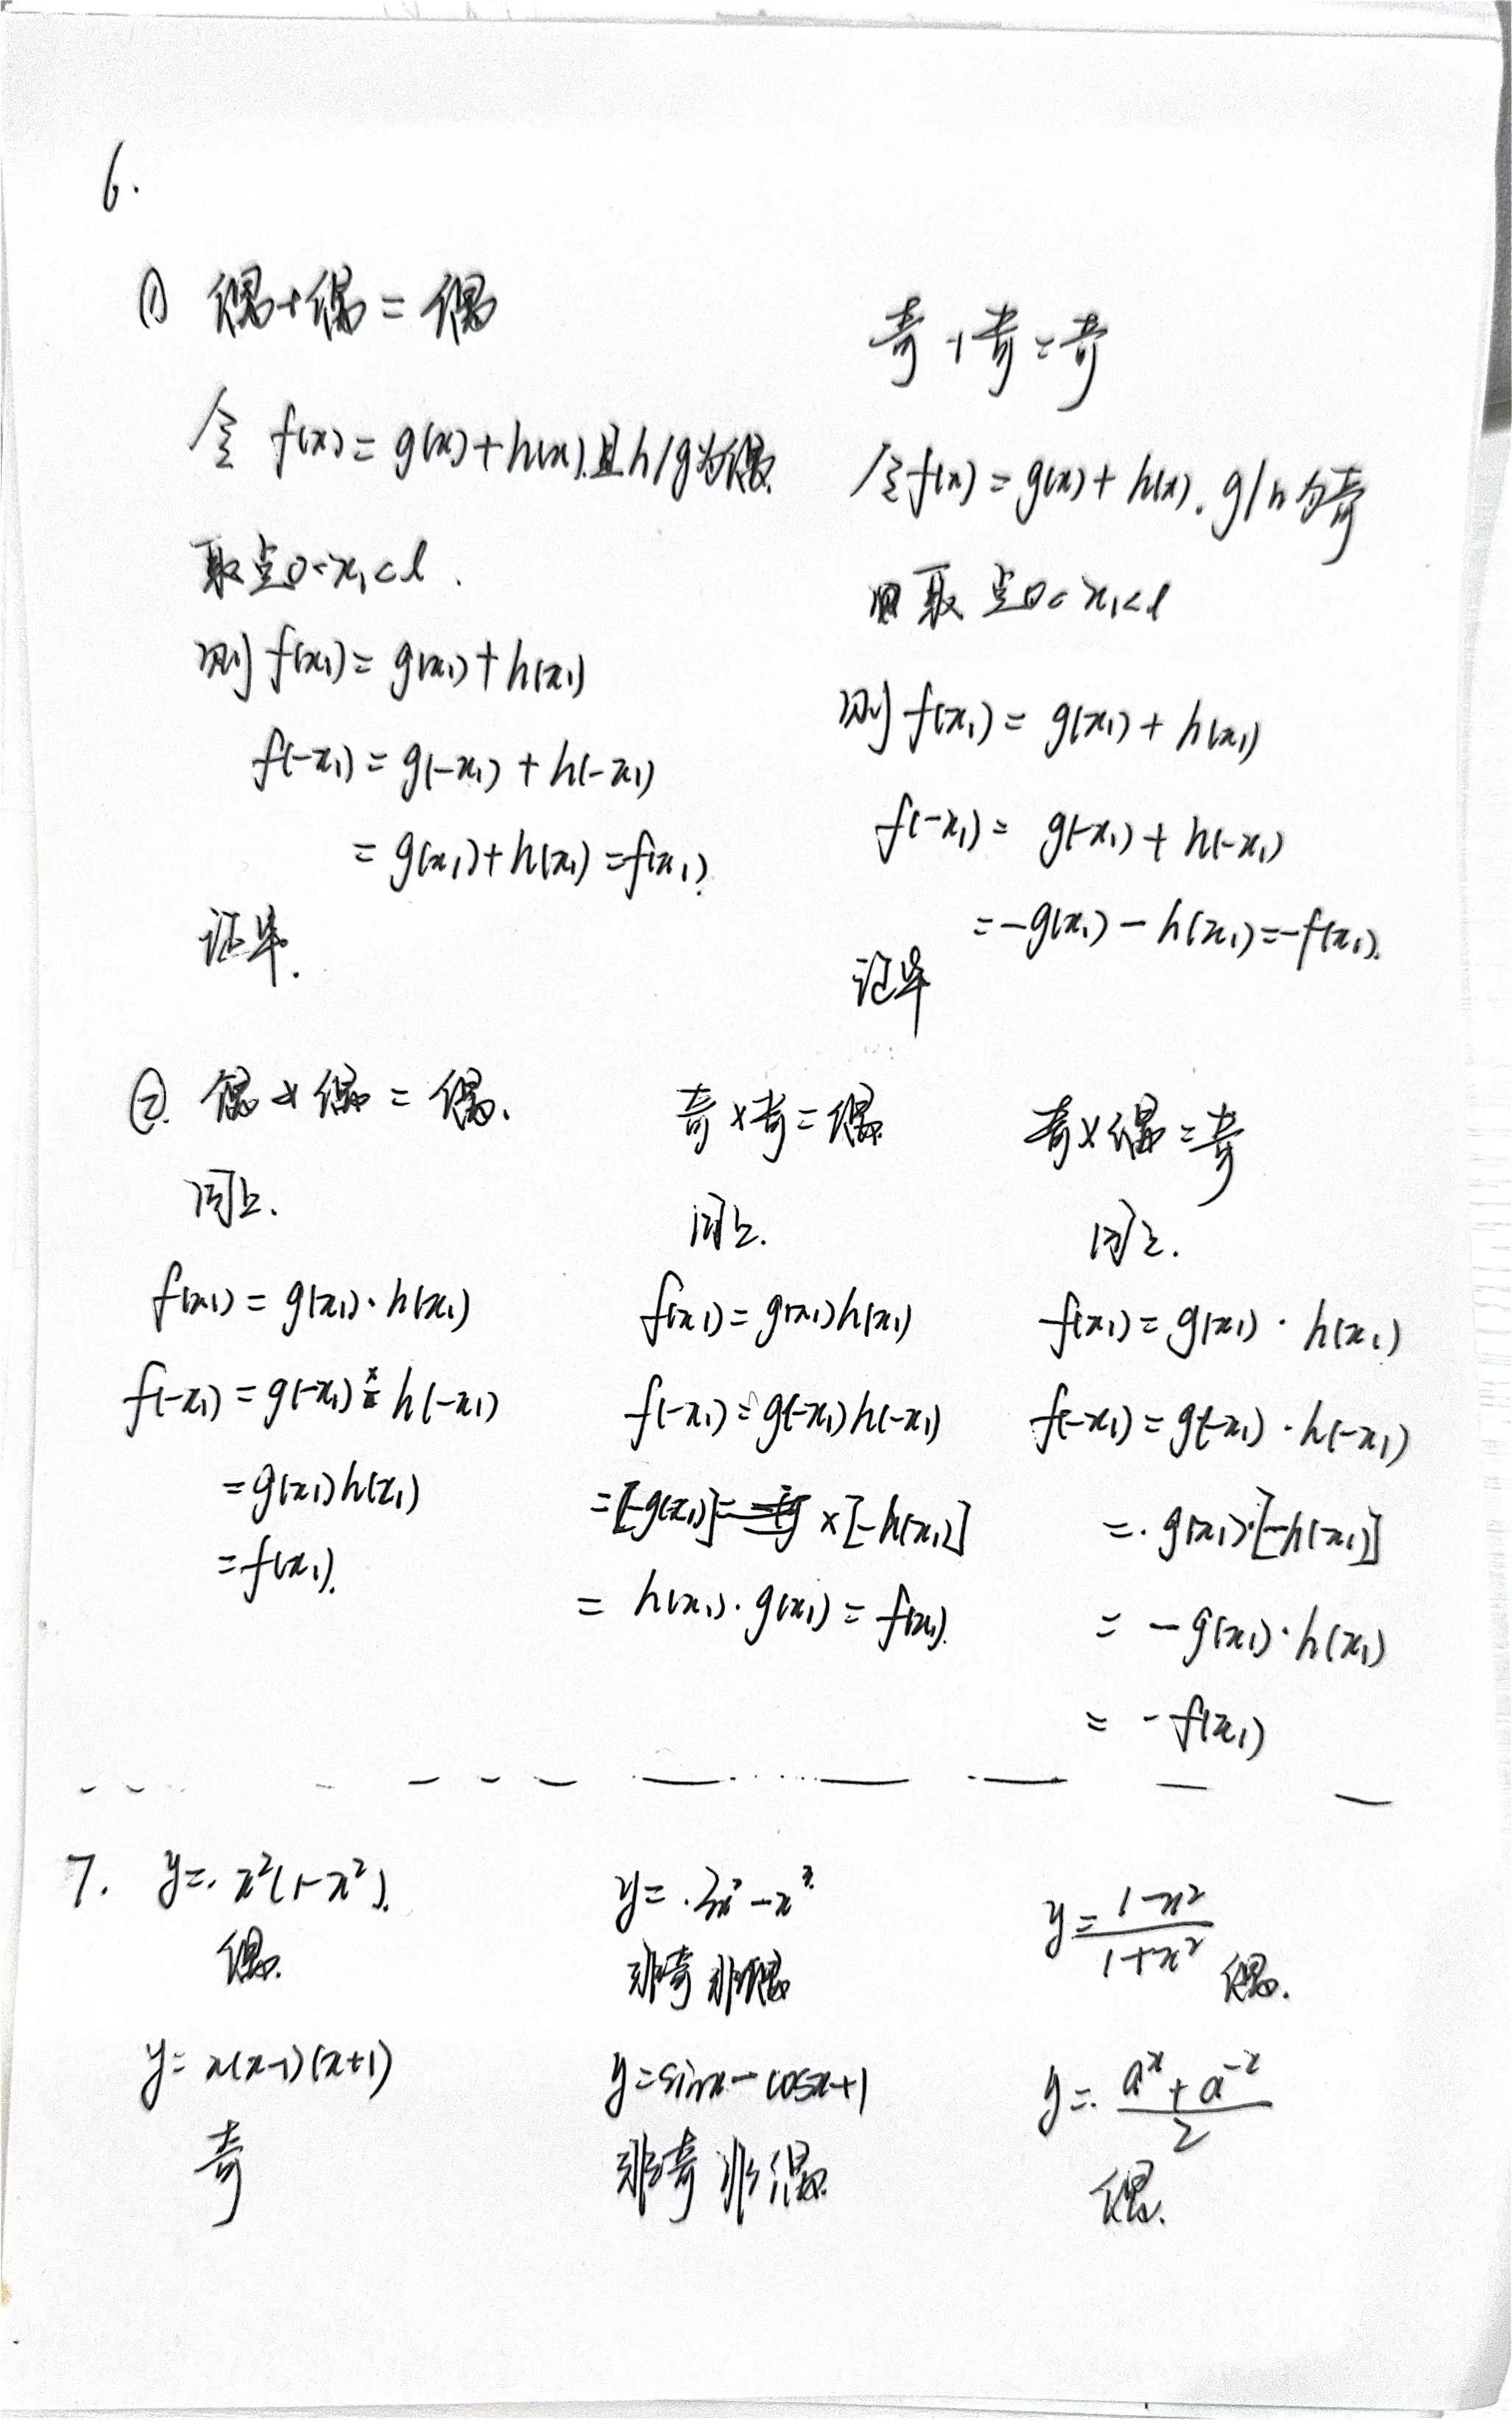 6.
① 偶+偶=偶
令 f(x)=g(x)+h(x).且h/g为偶.
取点0<x₁<l.
则 f(x₁)=g(x₁)+h(x₁)
f(-x₁)=g(-x₁)+h(-x₁)
=g(x₁)+h(x₁)=f(x₁).
证毕.
奇+奇=奇
令f(x)=g(x)+h(x).g/h为奇
取点0<x₁<l
则 f(x₁)=g(x₁)+h(x₁)
f(-x₁)=g(-x₁)+h(-x₁)
=-g(x₁)-h(x₁)=-f(x₁).
证毕
②. 偶×偶=偶.
同上.
f(x₁)=g(x₁)·h(x₁)
f(-x₁)=g(-x₁)×h(-x₁)
=g(x₁)h(x₁)
=f(x₁).
奇×奇=偶.
同上.
f(x₁)=g(x₁)h(x₁)
f(-x₁)=g(-x₁)h(-x₁)
=[-g(x₁)]×[-h(x₁)]
=h(x₁)·g(x₁)=f(x₁).
奇×偶=奇
同上.
f(x₁)=g(x₁)·h(x₁)
f(-x₁)=g(-x₁)·h(-x₁)
=g(x₁)·[-h(x₁)]
=-g(x₁)·h(x₁)
=-f(x₁)
7. y=x²(1-x²).
偶.
y=3x²-x³
非奇非偶
y=(1-x²)/(1+x²) 偶.
y=x(x-1)(x+1)
奇
y=sinx-cosx+1
非奇非偶.
y=(aˣ+a⁻ˣ)/2
偶.